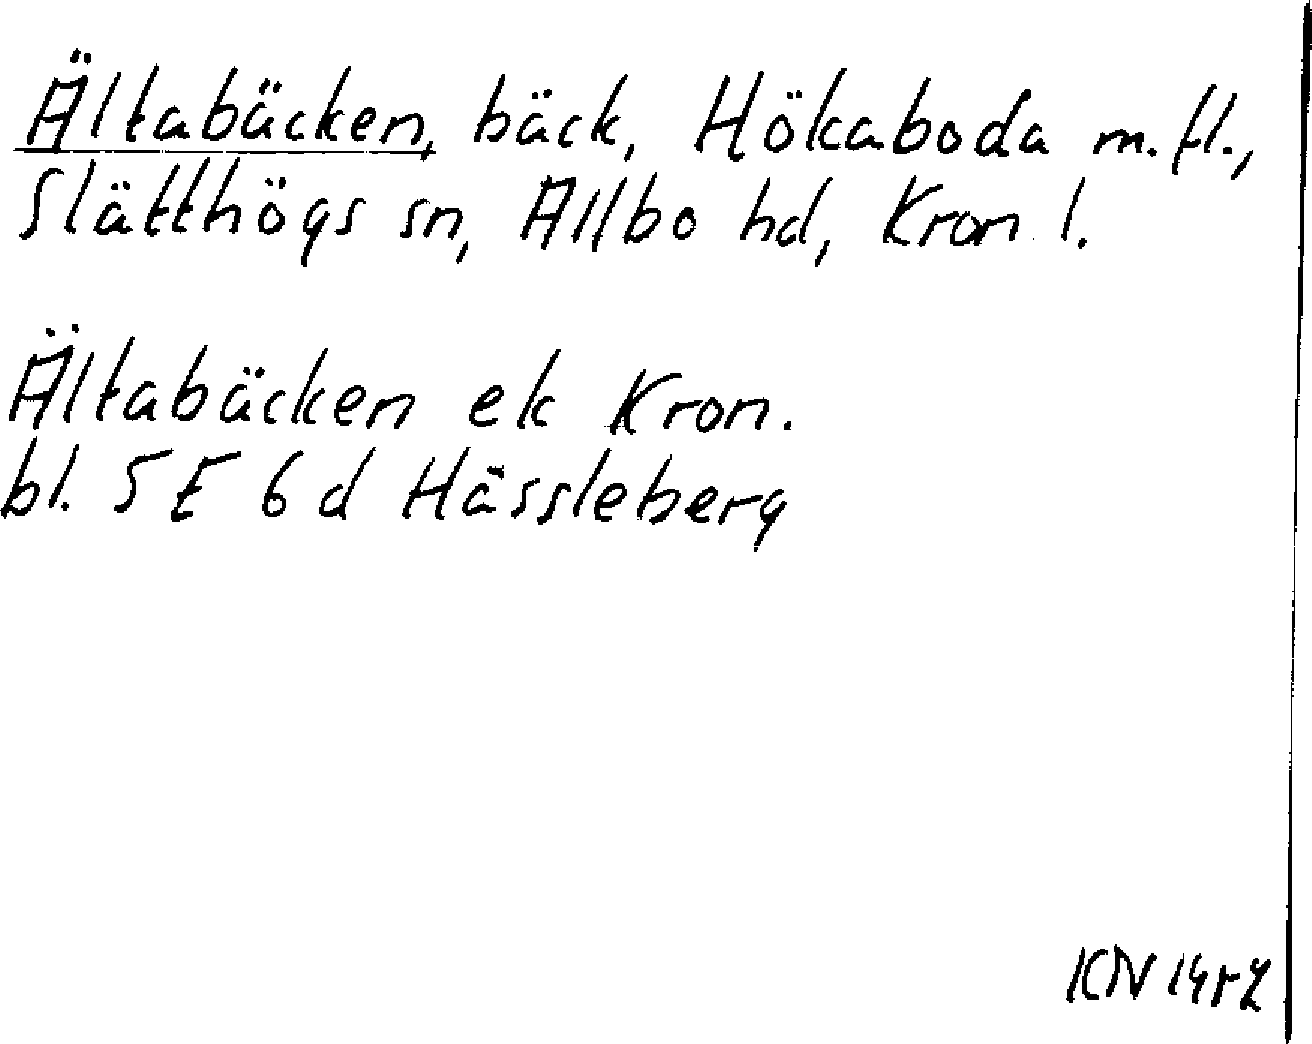 Ältabäcken, bäck, Hökaboda m.fl.,
Slätthögs sn, Allbo hd, Kron l.
Ältabäcken ek Kron.
bl. 5E 6d Hässleberg